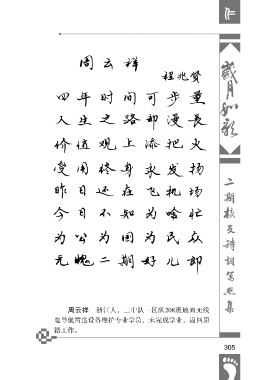 周云祥
程兆贤
四年时间可步量
人生之路却漫长
价值观上添把火
受用终身永发扬
昨日还在飞机场
今日不知为啥忙
为公为国为民众
无愧二期好儿郎
周云祥 浙江人，二中队一区队208班地面无线
电导航雷达设备维护专业学员，未完成学业，返回原
籍工作。
岁月如歌
二期校友诗词写照集
305